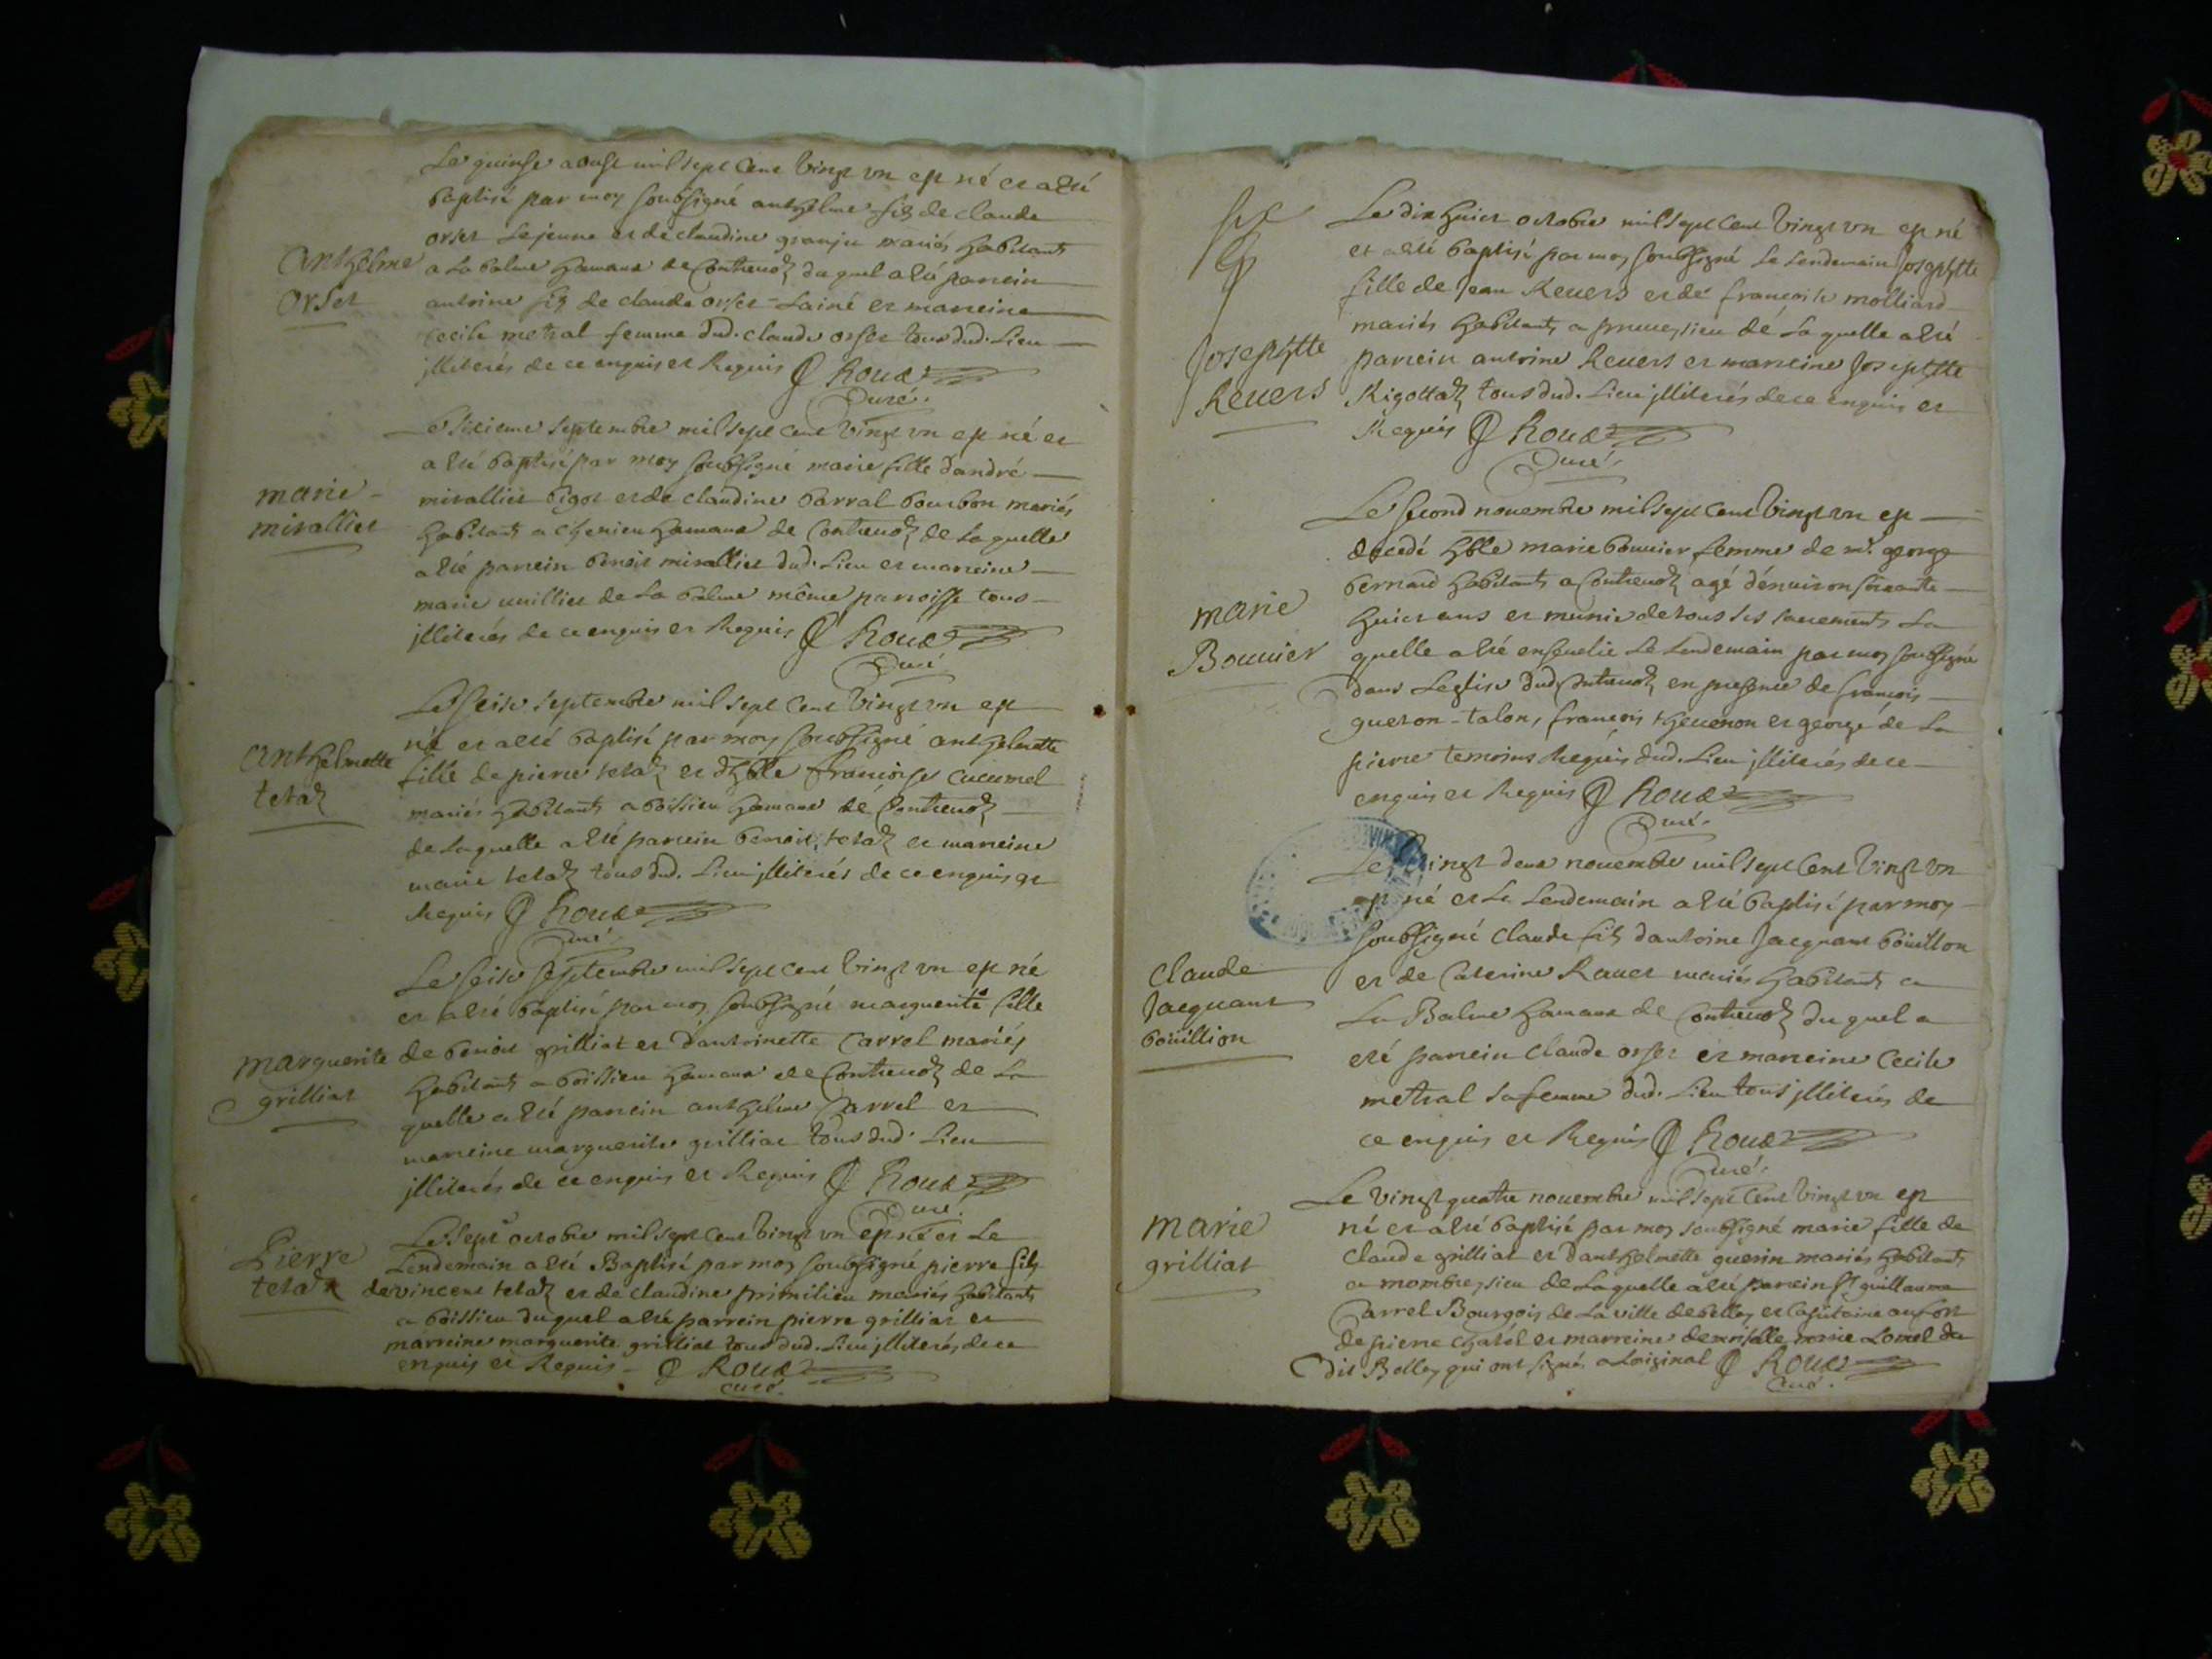 Le quinse aoust mil sept cent vingt vn est né et a esté
baptisé par moy soubsigné anthelme fils de claude
orset Le jeune et de claudine granju mariés habitants
anthelme
orset
a La balme hameau de Contreuoz du quel a esté parrein
antoine fils de claude orset Lainé et marreine
cecile metral femme dud. claude orset tous dud. Lieu
jlliterés de ce enquis et Requis Roux
Curé.
Le sixieme septembre mil sept cent vingt vn est né et
a esté baptisé par moy soubsigné marie fille dandré
marie
mirallier
mirallier bigot et de claudine barral bourbon mariés
habitants a chenieu hameau de Contreuoz de La quelle
a esté parrein benoit mirallier dud. Lieu et marreine
marie uuillier de La balme même parroisse tous
jlliterés de ce enquis et Requis Roux
Curé
Le seise septembre mil sept cent vingt vn est
né et a esté baptisé par moy soubsigné anthelmette
anthelmette
tetaz
fille de pierre tetaz et dhble francoise cucumel
mariés habitants a boissieu hameau de Contreuoz
de La quelle a esté parrein benoit tetaz et marreine
marie tetaz tous dud. Lieu jlliterés de ce enquis et
Requis Roux
Curé.
Le seise septembre mil sept cent vingt vn est né
et a esté baptisé par moy soubsigné marguerite fille
marguerite
grilliat
de benoit grilliat et dantoinette Carrel mariés
habitants a boissieu hameau de Contreuoz de La
quelle a esté parrein anthelme Carrel et
marreine marguerite grilliat tous dud. Lieu
jlliterés de ce enquis et Requis Roux
Curé.
Le sept octobre mil sept cent vingt vn est né et Le
Pierre
tetaz
Lendemain a esté Baptisé par moy soubsigné pierre fils
de vincent tetaz et de claudine primilieu mariés habitants
a boissieu du quel a esté parrein pierre grilliat et
marreine marguerite grilliat tous dud. Lieu jlliterés de ce
enquis et Requis Roux
curé.
Le dix huict octobre mil sept cent vingt vn est né
et a esté baptisé par moy soubsigné Le Lendemain Josephtte
fille de Jean Reuers et de francoise molliard
mariés habitants a preueysieu de La quelle a esté
Josephtte
Reuers
parrein antoine Reuers et marreine Josephtte
Rigottaz tous dud. Lieu jlliterés de ce enquis et
Requis Roux
Curé.
Le second nouembre mil sept cent vingt vn est
decedé hble marie bouuier femme de mr. george
bernard habitants a Contreuoz agé denuiron soixante
marie
Bouuier
huict ans et munie de tous ses sacrements La
quelle a esté enseuelie Le Lendemain par moy soubsigné
dans Leglise dud Contreuoz en presence de francois
gueron-talon, francois theuenon et george de La
pierre temoins Requis dud. Lieu jlliterés de ce
enquis et Requis Roux
Curé.
Le vingt deux nouembre mil sept cent vingt vn
est né et Le Lendemain a esté baptisé par moy
soubsigné claude fils dantoine Jacquant boüillon
claude
Jacquant
boüillion
et de Caterine Rauet mariés habitants a
La Balme hameau de Contreuoz du quel a
esté parrein claude orset et marreine Cecile
metral sa femme dud. Lieu tous jlliterés de
ce enquis et Requis Roux
Curé.
Le vingt quatre nouembre mil sept cent vingt vn est
marie
grilliat
né et a esté baptisé par moy soubsigné marie fille de
claude grilliat et danthelmette guerin mariés habitants
a mombreysieu de La quelle a esté parrein Sr guillaume
Carrel Bourgois de La ville de belley et Capitaine au fort
de pierre chatél et marreine demoiselle marie Lomel du
dit Belley qui ont signés a Loriginal Roux
Curé.